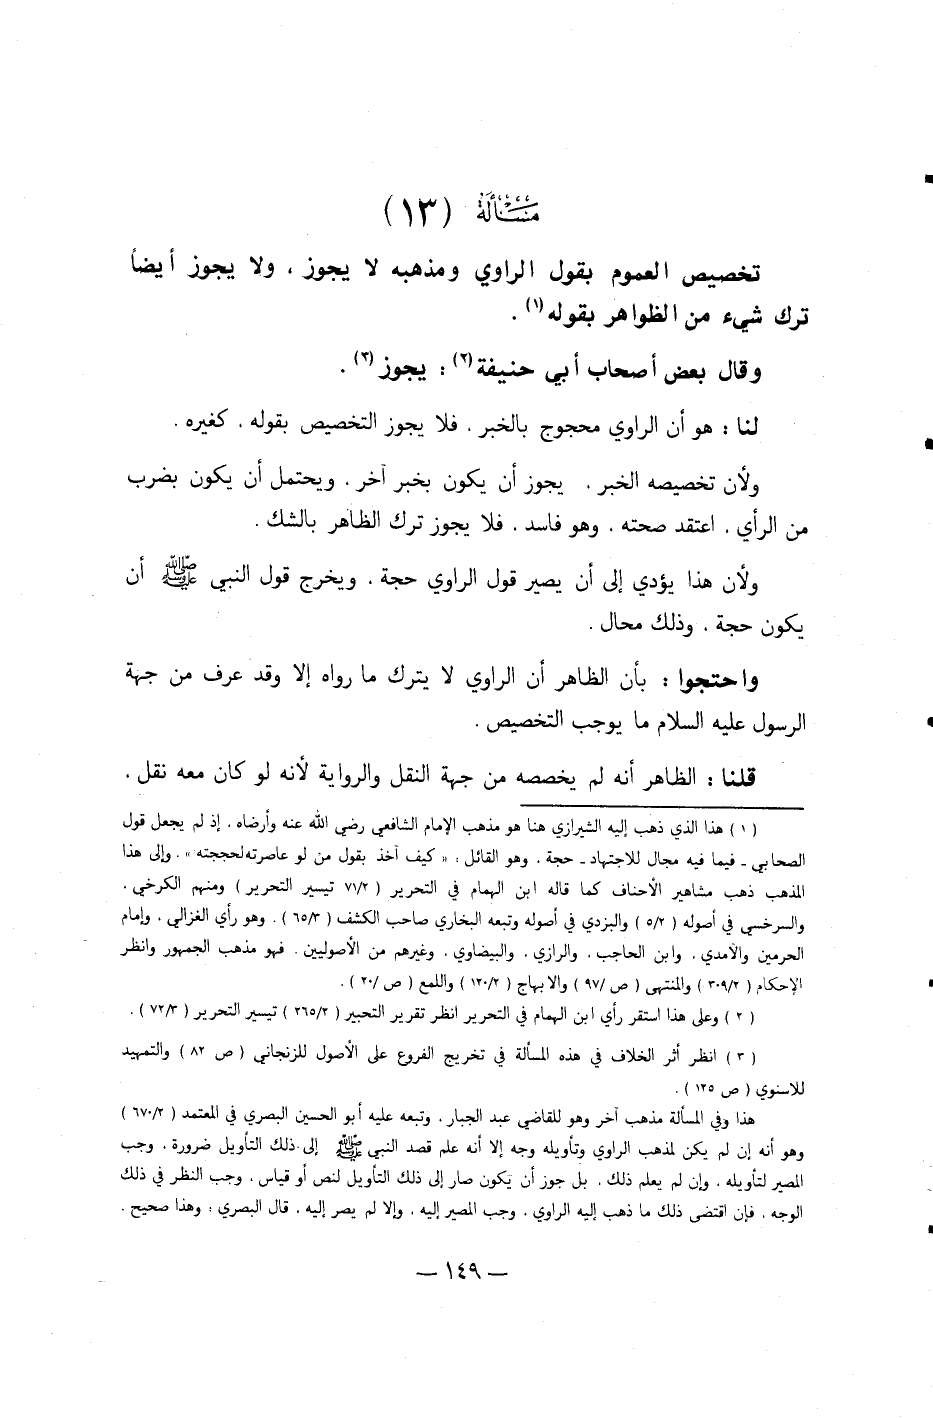 مسألة (١٣)
تخصيص العموم بقول الراوي ومذهبه لا يجوز ، ولا يجوز أيضاً
ترك شيء من الظواهر بقوله(١) .
وقال بعض أصحاب أبي حنيفة(٢) : يجوز(٣) .
لنا : هو أن الراوي محجوج بالخبر ، فلا يجوز التخصيص بقوله ، كغيره .
ولأن تخصيصه الخبر ، يجوز أن يكون بخبر آخر ، ويحتمل أن يكون بضرب
من الرأي ، اعتقد صحته ، وهو فاسد ، فلا يجوز ترك الظاهر بالشك .
ولأن هذا يؤدي إلى أن يصير قول الراوي حجة ، ويخرج قول النبي ﷺ أن
يكون حجة ، وذلك محال .
واحتجوا : بأن الظاهر أن الراوي لا يترك ما رواه إلا وقد عرف من جهة
الرسول عليه السلام ما يوجب التخصيص .
قلنا : الظاهر أنه لم يخصصه من جهة النقل والرواية لأنه لو كان معه نقل ،
( ١ ) هذا الذي ذهب إليه الشيرازي هنا هو مذهب الإمام الشافعي رضي الله عنه وأرضاه ، إذ لم يجعل قول
الصحابي ـ فيما فيه مجال للاجتهاد ـ حجة ، وهو القائل : « كيف آخذ بقول من لو عاصرته لحججته » ، وإلى هذا
المذهب ذهب مشاهير الأحناف كما قاله ابن الهمام في التحرير ( ٧١/٢ تيسير التحرير ) ومنهم الكرخي ،
والسرخسي في أصوله ( ٥/٢ ) والبزدي في أصوله وتبعه البخاري صاحب الكشف ( ٦٥/٣ ) . وهو رأي الغزالي ، وإمام
الحرمين والآمدي ، وابن الحاجب ، والرازي ، والبيضاوي ، وغيرهم من الأصوليين . فهو مذهب الجمهور وانظر
الإحكام ( ٣٠٩/٢ ) والمنتهى ( ص /٩٧ ) والابهاج ( ١٢٠/٢ ) واللمع ( ص /٢٠ ) .
( ٢ ) وعلى هذا استقر رأي ابن الهمام في التحرير انظر تقرير التحبير ( ٢٦٥/٢ ) تيسير التحرير ( ٧٢/٣ ) .
( ٣ ) انظر أثر الخلاف في هذه المسألة في تخريج الفروع على الأصول للزنجاني ( ص ٨٢ ) والتمهيد
للاسنوي ( ص ١٢٥ ) .
هذا وفي المسألة مذهب آخر وهو للقاضي عبد الجبار ، وتبعه عليه أبو الحسين البصري في المعتمد ( ٦٧٠/٢ )
وهو أنه إن لم يكن لمذهب الراوي وتأويله وجه إلا أنه علم قصد النبي ﷺ إلى ذلك التأويل ضرورة ، وجب
المصير لتأويله ، وإن لم يعلم ذلك ، بل جوز أن يكون صار إلى ذلك التأويل لنص أو قياس ، وجب النظر في ذلك
الوجه ، فإن اقتضى ذلك ما ذهب إليه الراوي ، وجب المصير إليه ، وإلا لم يصر إليه ، قال البصري : وهذا صحيح .
— ١٤٩ —